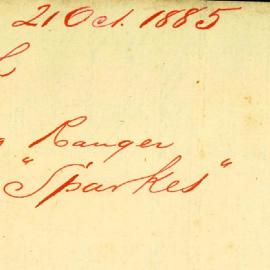 21 Oct. 1885
Ranger
"Sparkes"